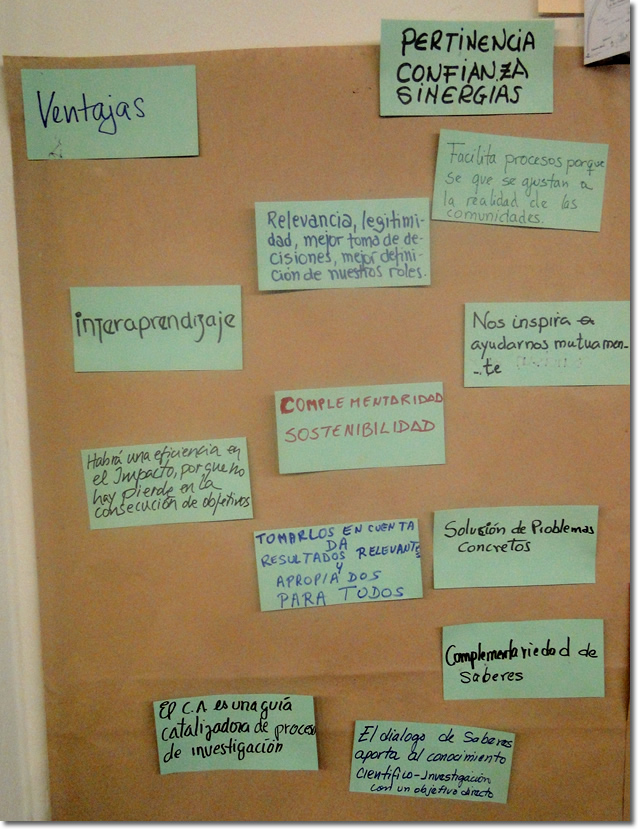 Ventajas
PERTINENCIA
CONFIANZA
SINERGIAS
Facilita procesos porque
se que se ajustan a
la realidad de las
comunidades.
Relevancia, legitimi-
dad, mejor toma de de-
cisiones, mejor defini-
ción de nuestros roles.
interaprendizaje
Nos inspira a
ayudarnos mutuamen-
-te
COMPLEMENTARIDAD
SOSTENIBILIDAD
Habrá una eficiencia en
el Impacto, porque no
hay pierde en la
consecución de objetivos
TOMARLOS EN CUENTA
DA
RESULTADOS RELEVANTES
Y
APROPIADOS
PARA TODOS
Solución de Problemas
Concretos
Complementariedad de
Saberes
El C.A es una guía
catalizadora de proceso
de investigación
El dialogo de Saberes
aporta al conocimiento
científico-Investigación
con un objetivo directo